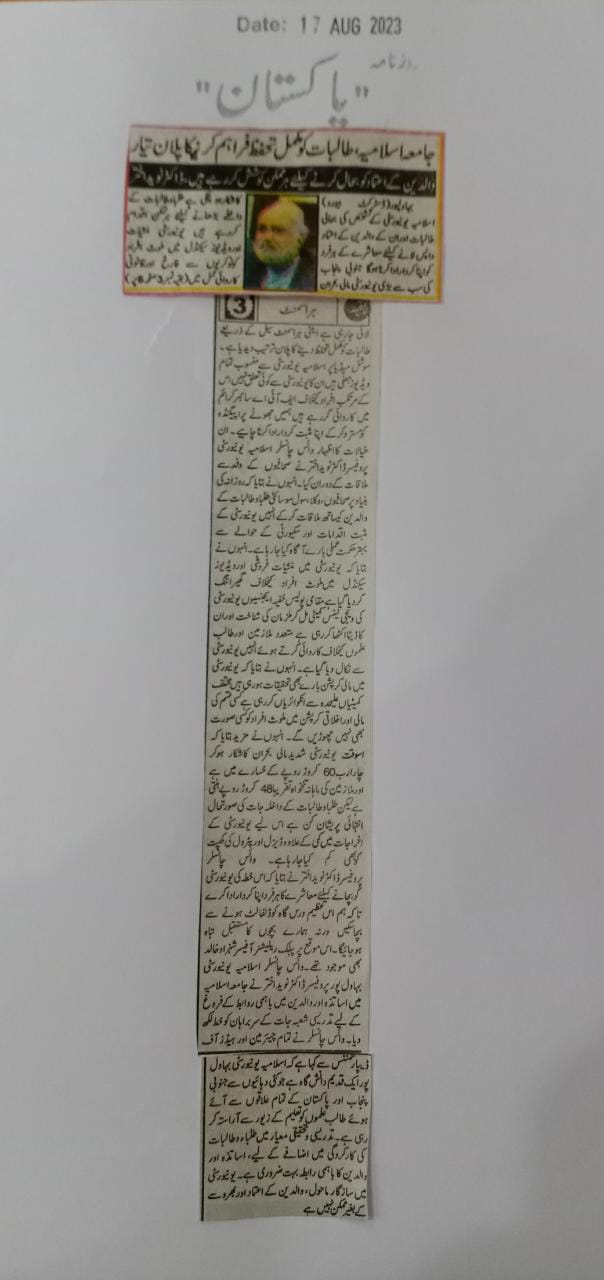 Date: 17 AUG 2023
روزنامہ
"پاکستان"
جامعہ اسلامیہ، طالبات کو مکمل تحفظ فراہم کرنیکا پلان تیار
والدین کے اعتماد کو بحال کرنے کیلئے ہر ممکن کوشش کر رہے ہیں، ڈاکٹر نوید اختر
بہاولپور (ڈسٹرکٹ بیورو)
اسلامیہ یونیورسٹی کے تشخص کی بحالی
طالبات اور ان کے والدین کے اعتماد
واپس لانے کیلئے معاشرے کے ہر فرد
کو اپنا کردار ادا کرنا ہوگا جنوبی پنجاب
کی سب سے بڑی یونیورسٹی مالی بحران
کا شکار ہو چکی ہے طلباء و طالبات کے
داخلے بڑھانے کیلئے ہر ممکن اقدام
کر رہے ہیں یونیورسٹی منشیات
اور ویڈیوز سکینڈل میں ملوث افراد
کو نوکریوں سے فارغ اور قانونی
کارروائی عمل میں (بقیہ نمبر 3 صفحہ 6 پر)
3 ہراسمنٹ بقیہ
لائی جا رہی ہے اینٹی ہراسمنٹ سیل کے ذریعے
طالبات کو مکمل تحفظ دینے کا پلان ترتیب دیدیا ہے۔
سوشل میڈیا پر اسلامیہ یونیورسٹی سے منسوب تمام
ویڈیوز جعلی ہیں ان کا یونیورسٹی سے کوئی تعلق نہیں اس
کے مرتکب افراد کیخلاف ایف آئی اے سائبر کرائم
میں کاروائی کر رہے ہیں ہمیں جھوٹے پراپیگنڈہ
کو مسترد کر کے اپنا مثبت کردار ادا کرنا چاہیے۔ ان
خیالات کا اظہار وائس چانسلر اسلامیہ یونیورسٹی
پروفیسر ڈاکٹر نوید اختر نے صحافیوں کے وفد سے
ملاقات کے دوران کیا۔ انہوں نے بتایا کہ روزانہ کی
بنیاد پر صحافیوں، وکلاء، سول سوسائٹی طلباء و طالبات کے
والدین کیساتھ ملاقات کر کے انہیں یونیورسٹی کے
مثبت اقدامات اور سکیورٹی کے حوالے سے
بہتر حکمت عملی بارے آگاہ کیا جا رہا ہے۔ انہوں نے
بتایا کہ یونیورسٹی میں منشیات فروشی اور ویڈیوز
سکینڈل میں ملوث افراد کیخلاف گھیرا تنگ
کر دیا گیا ہے مقامی پولیس خفیہ ایجنسیوں یونیورسٹی
کی ویجی لینس کمیٹی مل کر ملزمان کی شناخت اور ان
کا ڈیٹا اکٹھا کر رہی ہے متعدد ملازمین اور طالب
علموں کیخلاف کاروائی کرتے ہوئے انہیں یونیورسٹی
سے نکال دیا گیا ہے۔ انہوں نے بتایا کہ یونیورسٹی
میں مالی کرپشن بارے بھی تحقیقات ہو رہی ہیں مختلف
کمیٹیاں علیحدہ سے انکوائریاں کر رہی ہے کسی قسم کی
مالی اور اخلاقی کرپشن میں ملوث افراد کو کسی صورت
بھی نہیں چھوڑیں گے۔ انہوں نے مزید بتایا کہ
اسوقت یونیورسٹی شدید مالی بحران کا شکار ہو کر
چار ارب 60 کروڑ روپے کے خسارے میں ہے
اور ملازمین کی ماہانہ تنخواہ تقریبا 48 کروڑ روپے بنتی
ہے لیکن طلباء و طالبات کے داخلہ جات کی صورتحال
انتہائی پریشان کن ہے اس لیے یونیورسٹی کے
اخراجات میں کمی کے علاوہ ڈیزل اور پٹرول کی کھپت
کو بھی کم کیا جا رہا ہے۔ وائس چانسلر
پروفیسر ڈاکٹر نوید اختر نے بتایا کہ اس خطہ کی یونیورسٹی
کو بچانے کیلئے معاشرے کا ہر فرد اپنا کردار ادا کرے
تاکہ ہم اس عظیم درس گاہ کو ڈیفالٹ ہونے سے
بچا سکیں ورنہ ہمارے بچوں کا مستقبل تباہ
ہو جائیگا۔ اس موقع پر پبلک ریلیشنز آفیسر شہزاد خالد
بھی موجود تھے۔ وائس چانسلر اسلامیہ یونیورسٹی
بہاول پور پروفیسر ڈاکٹر نوید اختر نے جامعہ اسلامیہ
میں اساتذہ اور والدین میں باہمی روابط کے فروغ
کے لیے تدریسی شعبہ جات کے سربراہان کو خط لکھ
دیا۔ وائس چانسلر نے تمام چیئرمین اور ہیڈز آف
ڈیپارٹمنٹس سے کہا ہے کہ اسلامیہ یونیورسٹی بہاول
پور ایک قدیم دانش گاہ ہے جو کئی دہائیوں سے جنوبی
پنجاب اور پاکستان کے تمام علاقوں سے آئے
ہوئے طالب علموں کو تعلیم کے زیور سے آراستہ کر
رہی ہے۔ تدریسی و تحقیقی معیار میں طلباء و طالبات
کی کارکردگی میں اضافے کے لیے، اساتذہ اور
والدین کا باہمی رابطہ بہت ضروری ہے۔ یونیورسٹی
میں سازگار ماحول، والدین کے اعتماد اور بھروسے
کے بغیر ممکن نہیں ہے